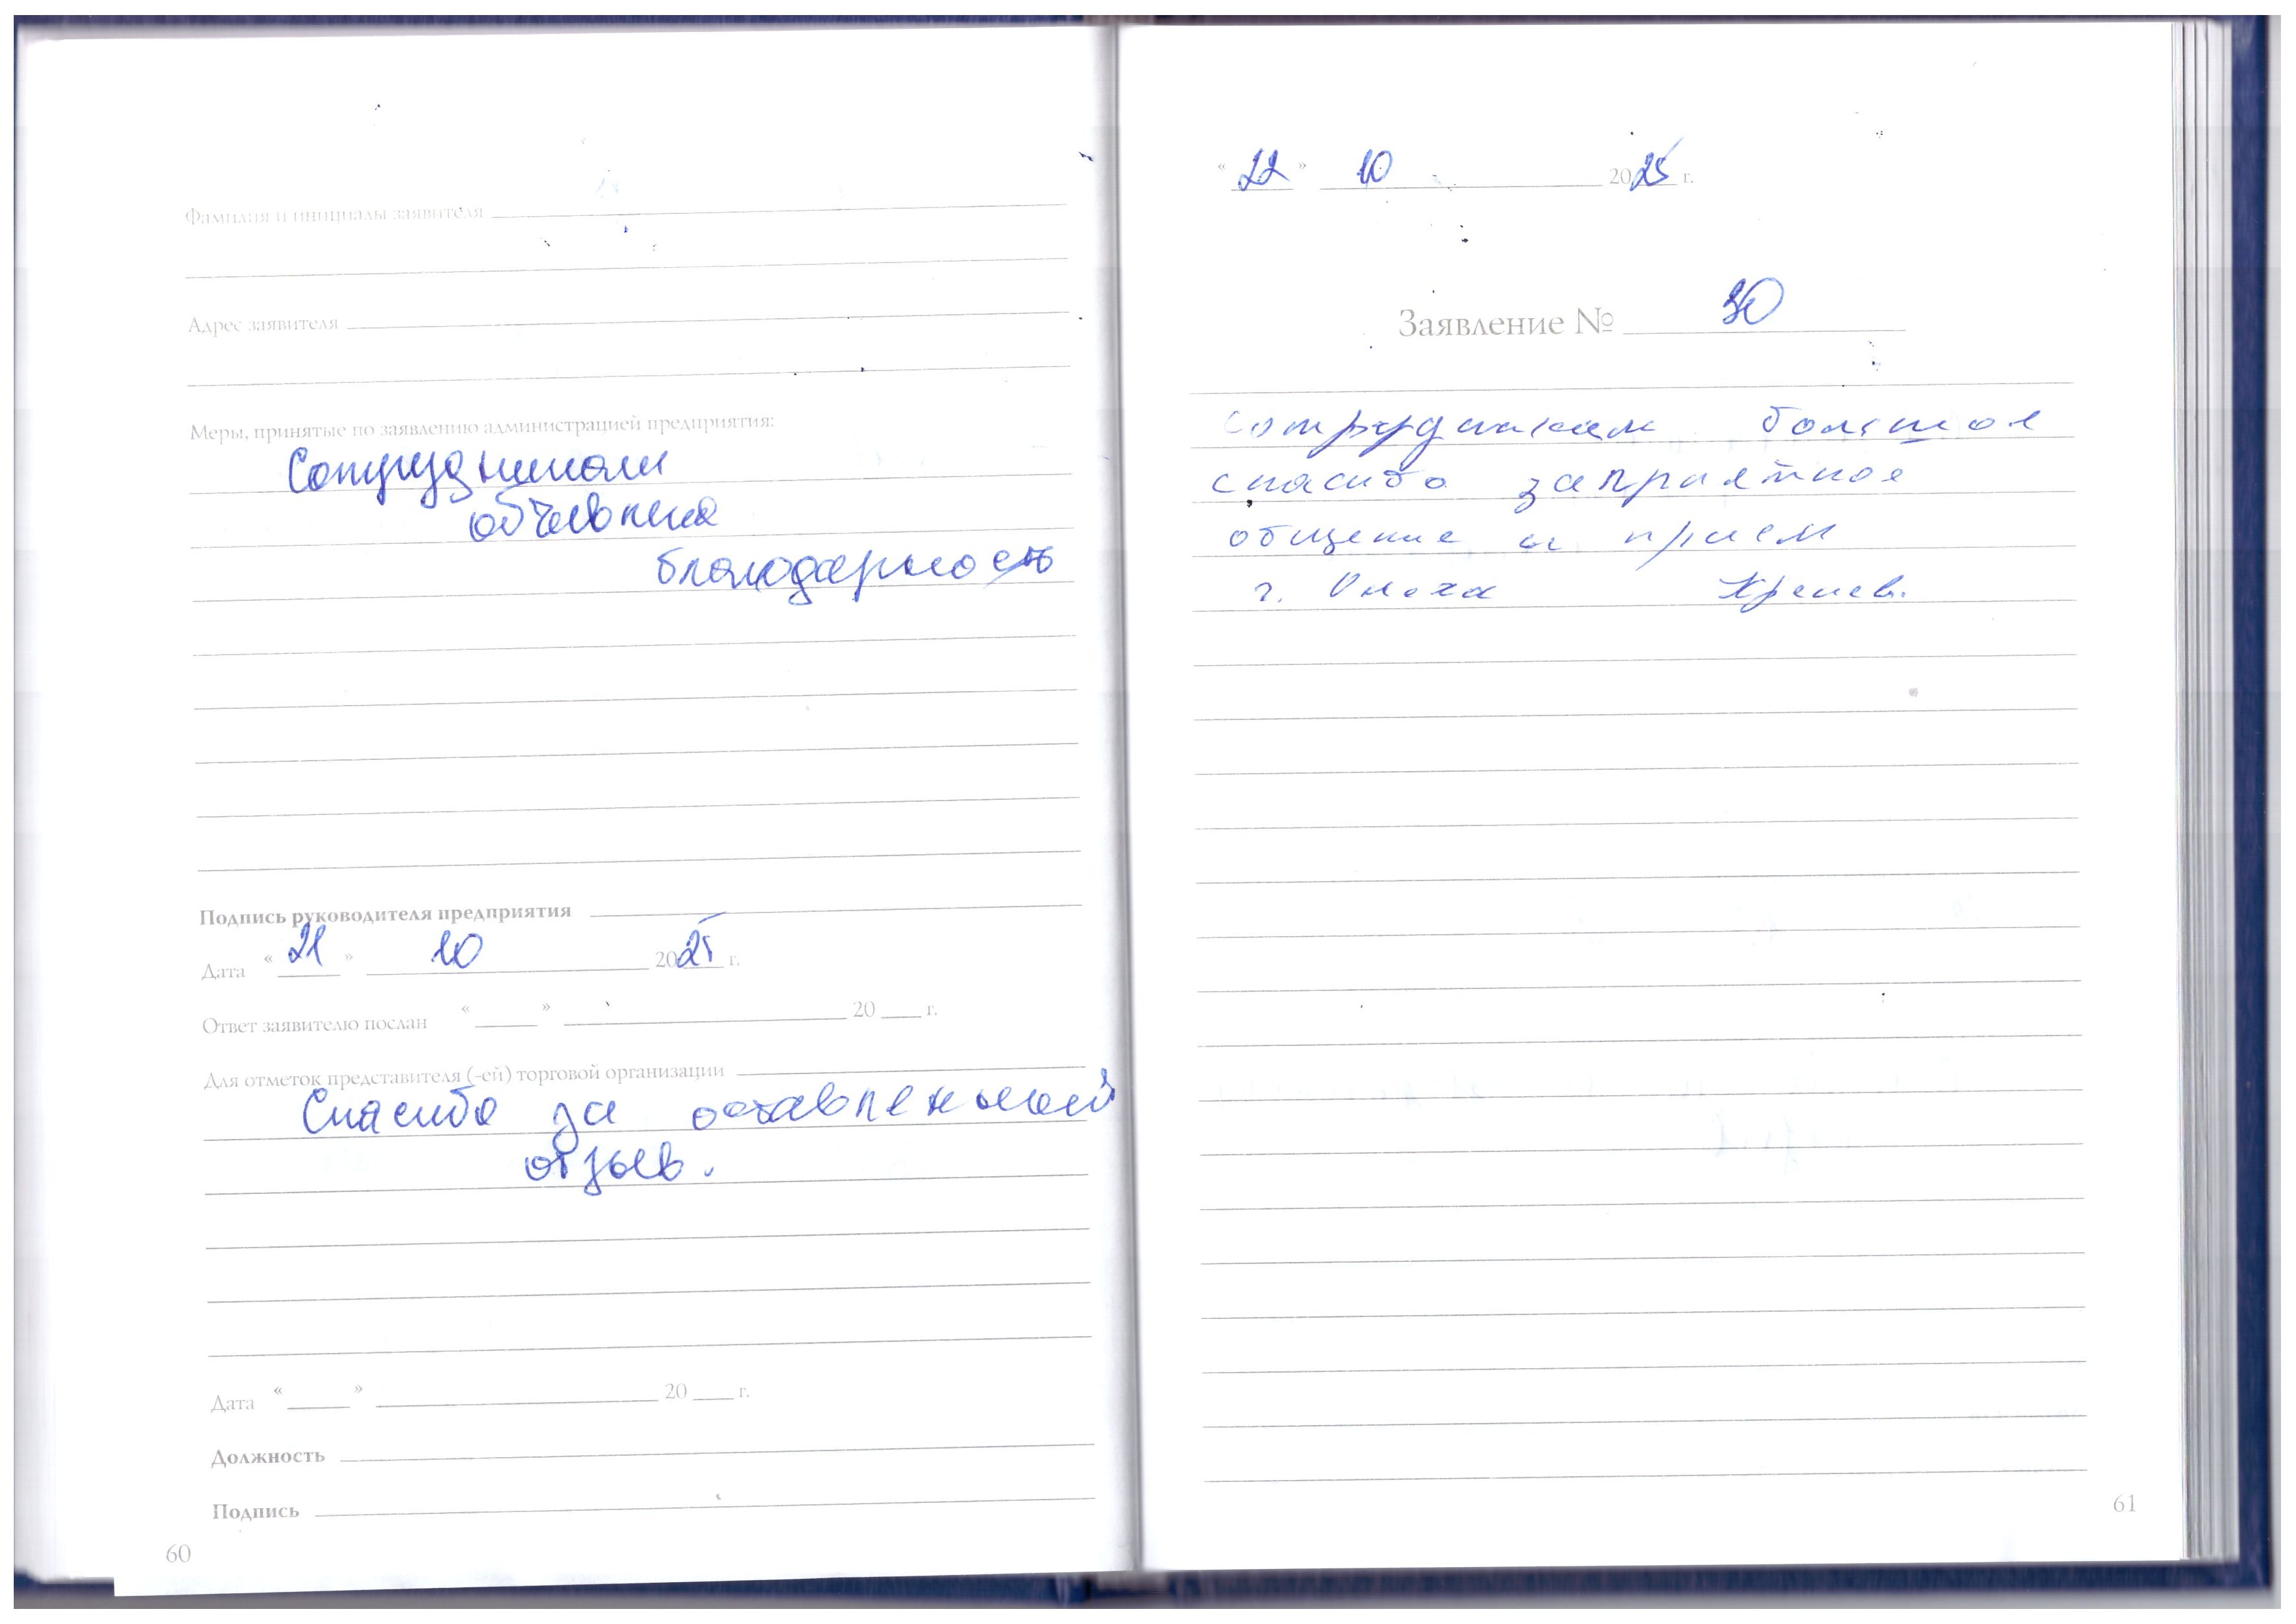 Фамилия и инициалы заявителя
Адрес заявителя
Меры, принятые по заявлению администрацией предприятия:
Сотрудникам
объявлена
благодарность
Подпись руководителя предприятия
Дата « 21 » 10 2025 г.
Ответ заявителю послан « » 20 г.
Для отметок представителя (-ей) торговой организации
Спасибо за оставленный
отзыв.
Дата « » 20 г.
Должность
Подпись
60
« 22 » 10 2025 г.
Заявление № 30
Сотрудникам большое
спасибо за приятное
общение и прием
г.
61